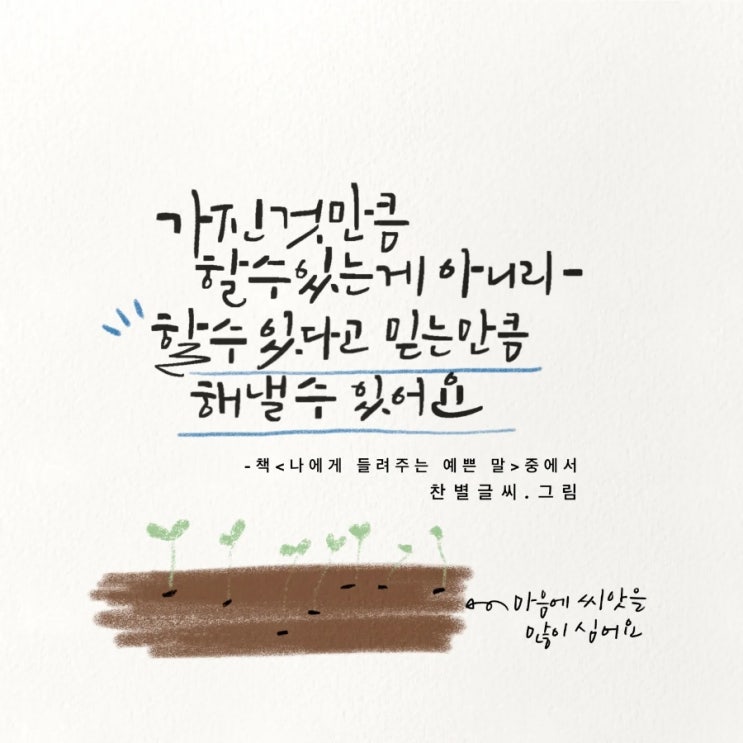 가진것만큼
할수있는게 아니라-
할수 있다고 믿는만큼
해낼수 있어요
-책<나에게 들려주는 예쁜 말>중에서
찬별글씨.그림
마음에 씨앗을
많이 심어요